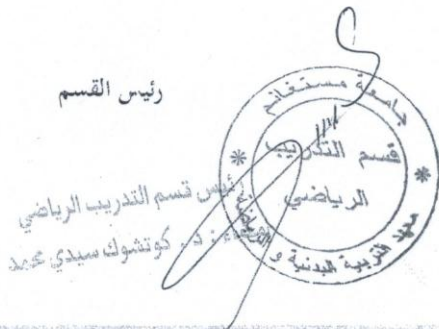 رئيس القسم
جامعة مستغانم
قسم التدريب
الرياضي
معهد التربية البدنية و
رئيس قسم التدريب الرياضي
د. كوتشوك سيدي محمد